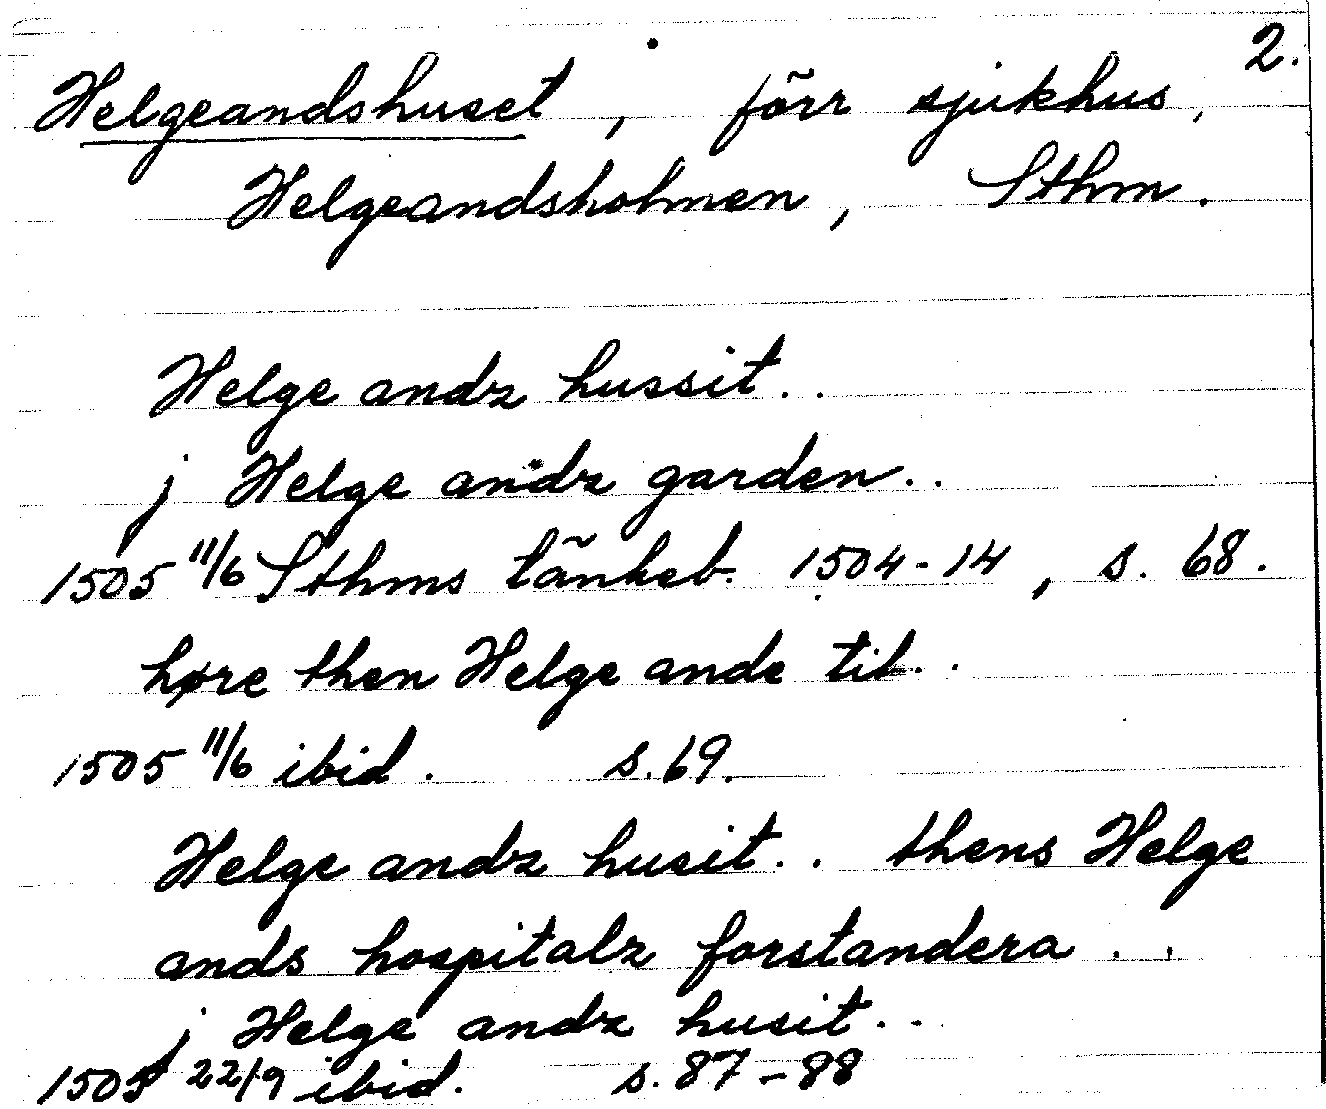 2.
Helgeandshuset, förr sjukhus,
Helgeandsholmen, Sthm.
Helge andz hussit..
j Helge andz garden..
1505 11/6 Sthms tänkeb. 1504-14, s. 68.
høre then Helge ande til..
1505 11/6 ibid. s. 69.
Helge andz husit.. thens Helge
ands hospitalz forstandera..
j Helge andz husit..
1505 22/9 ibid. s. 87-88